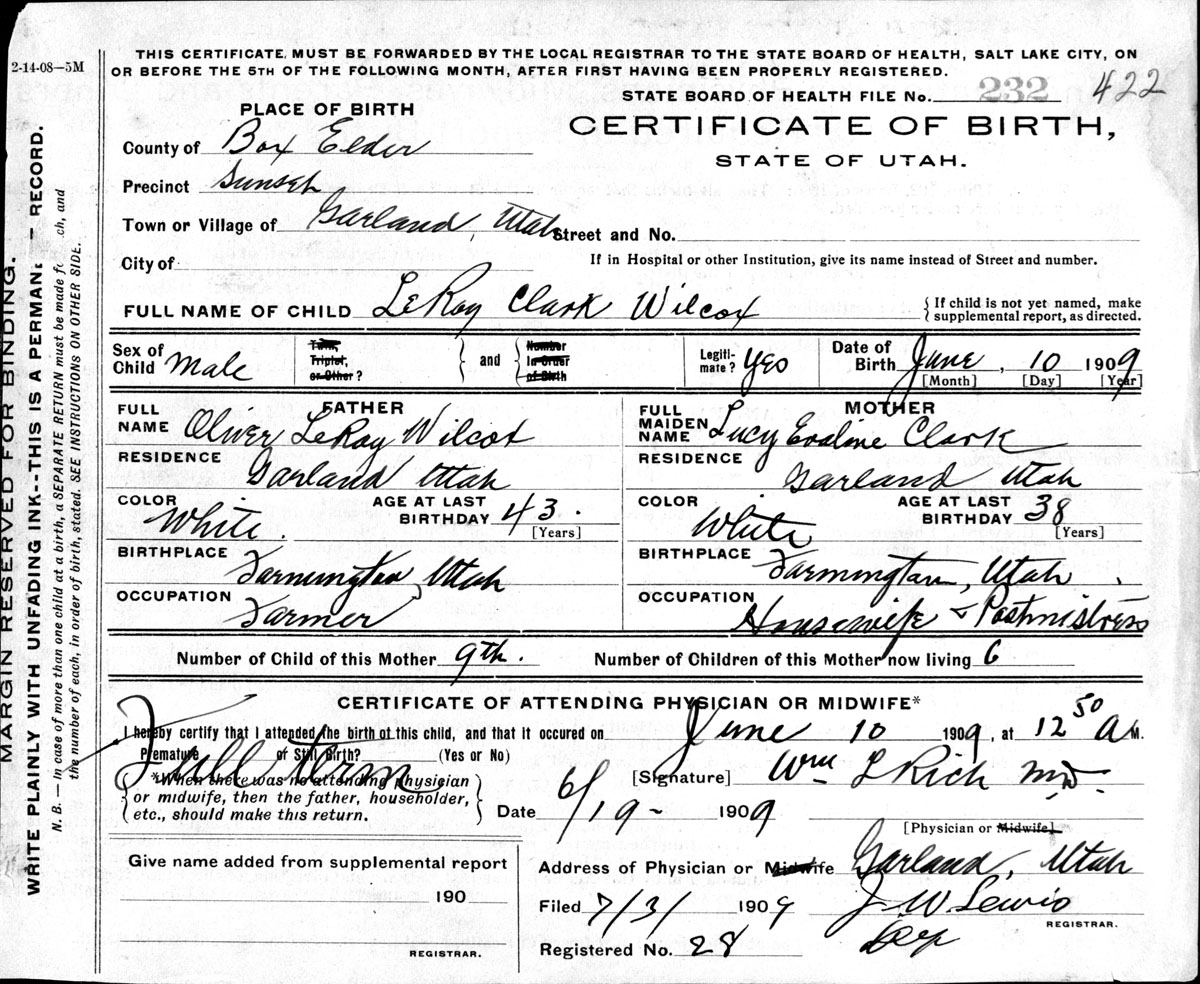 2-14-08—5M
THIS CERTIFICATE MUST BE FORWARDED BY THE LOCAL REGISTRAR TO THE STATE BOARD OF HEALTH, SALT LAKE CITY, ON
OR BEFORE THE 5TH OF THE FOLLOWING MONTH, AFTER FIRST HAVING BEEN PROPERLY REGISTERED.
STATE BOARD OF HEALTH FILE No. 232 422
PLACE OF BIRTH
CERTIFICATE OF BIRTH,
STATE OF UTAH.
County of Box Elder
Precinct Sunset
Town or Village of Garland, Utah Street and No.
City of
If in Hospital or other Institution, give its name instead of Street and number.
FULL NAME OF CHILD LeRoy Clark Wilcox
{If child is not yet named, make
supplemental report, as directed.
Sex of
Child Male
Twin,
Triplet,
or Other?
and
Number
In Order
of Birth
Legiti-
mate? Yes
Date of
Birth June, 10 1909
[Month] [Day] [Year]
FATHER
FULL
NAME Oliver LeRoy Wilcox
RESIDENCE
Garland Utah
COLOR
White.
AGE AT LAST
BIRTHDAY 43.
[Years]
BIRTHPLACE
Farmington, Utah
OCCUPATION
Farmer
MOTHER
FULL
MAIDEN
NAME Lucy Evaline Clark
RESIDENCE
Garland Utah
COLOR
White
AGE AT LAST
BIRTHDAY 38
[Years]
BIRTHPLACE
Farmington, Utah.
OCCUPATION
Housewife & Postmistress
Number of Child of this Mother 9th. Number of Children of this Mother now living 6
CERTIFICATE OF ATTENDING PHYSICIAN OR MIDWIFE*
I hereby certify that I attended the birth of this child, and that it occured on June 10 1909, at 12 50 A M.
Premature or Still Birth? (Yes or No)
Full term
*When there was no attending physician
or midwife, then the father, householder,
etc., should make this return.
[Signature] Wm L Rich MD.
Date 6/19- 1909
[Physician or Midwife]
Give name added from supplemental report
190
REGISTRAR.
Address of Physician or Midwife Garland, Utah
Filed 7/3/ 1909 J. W. Lewis
REGISTRAR.
Registered No. 28 Dep
MARGIN RESERVED FOR BINDING.
WRITE PLAINLY WITH UNFADING INK--THIS IS A PERMAN. - RECORD.
N. B. — In case of more than one child at a birth, a SEPARATE RETURN must be made f ch, and
the number of each, in order of birth, stated. SEE INSTRUCTIONS ON OTHER SIDE.